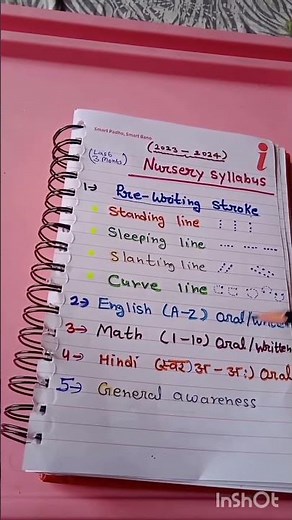 Smart Padho, Smart Bano
i
(2023 - 2024)
(Last 3 Months)
Nursery Syllabus
1→ Pre-Writing Stroke
Standing line
Sleeping line
Slanting line
Curve line
2→ English (A-Z) Oral/written
3→ Math (1-10) Oral/written
4→ Hindi (स्वर) अ - अः) Oral
5→ General awareness
InShOt